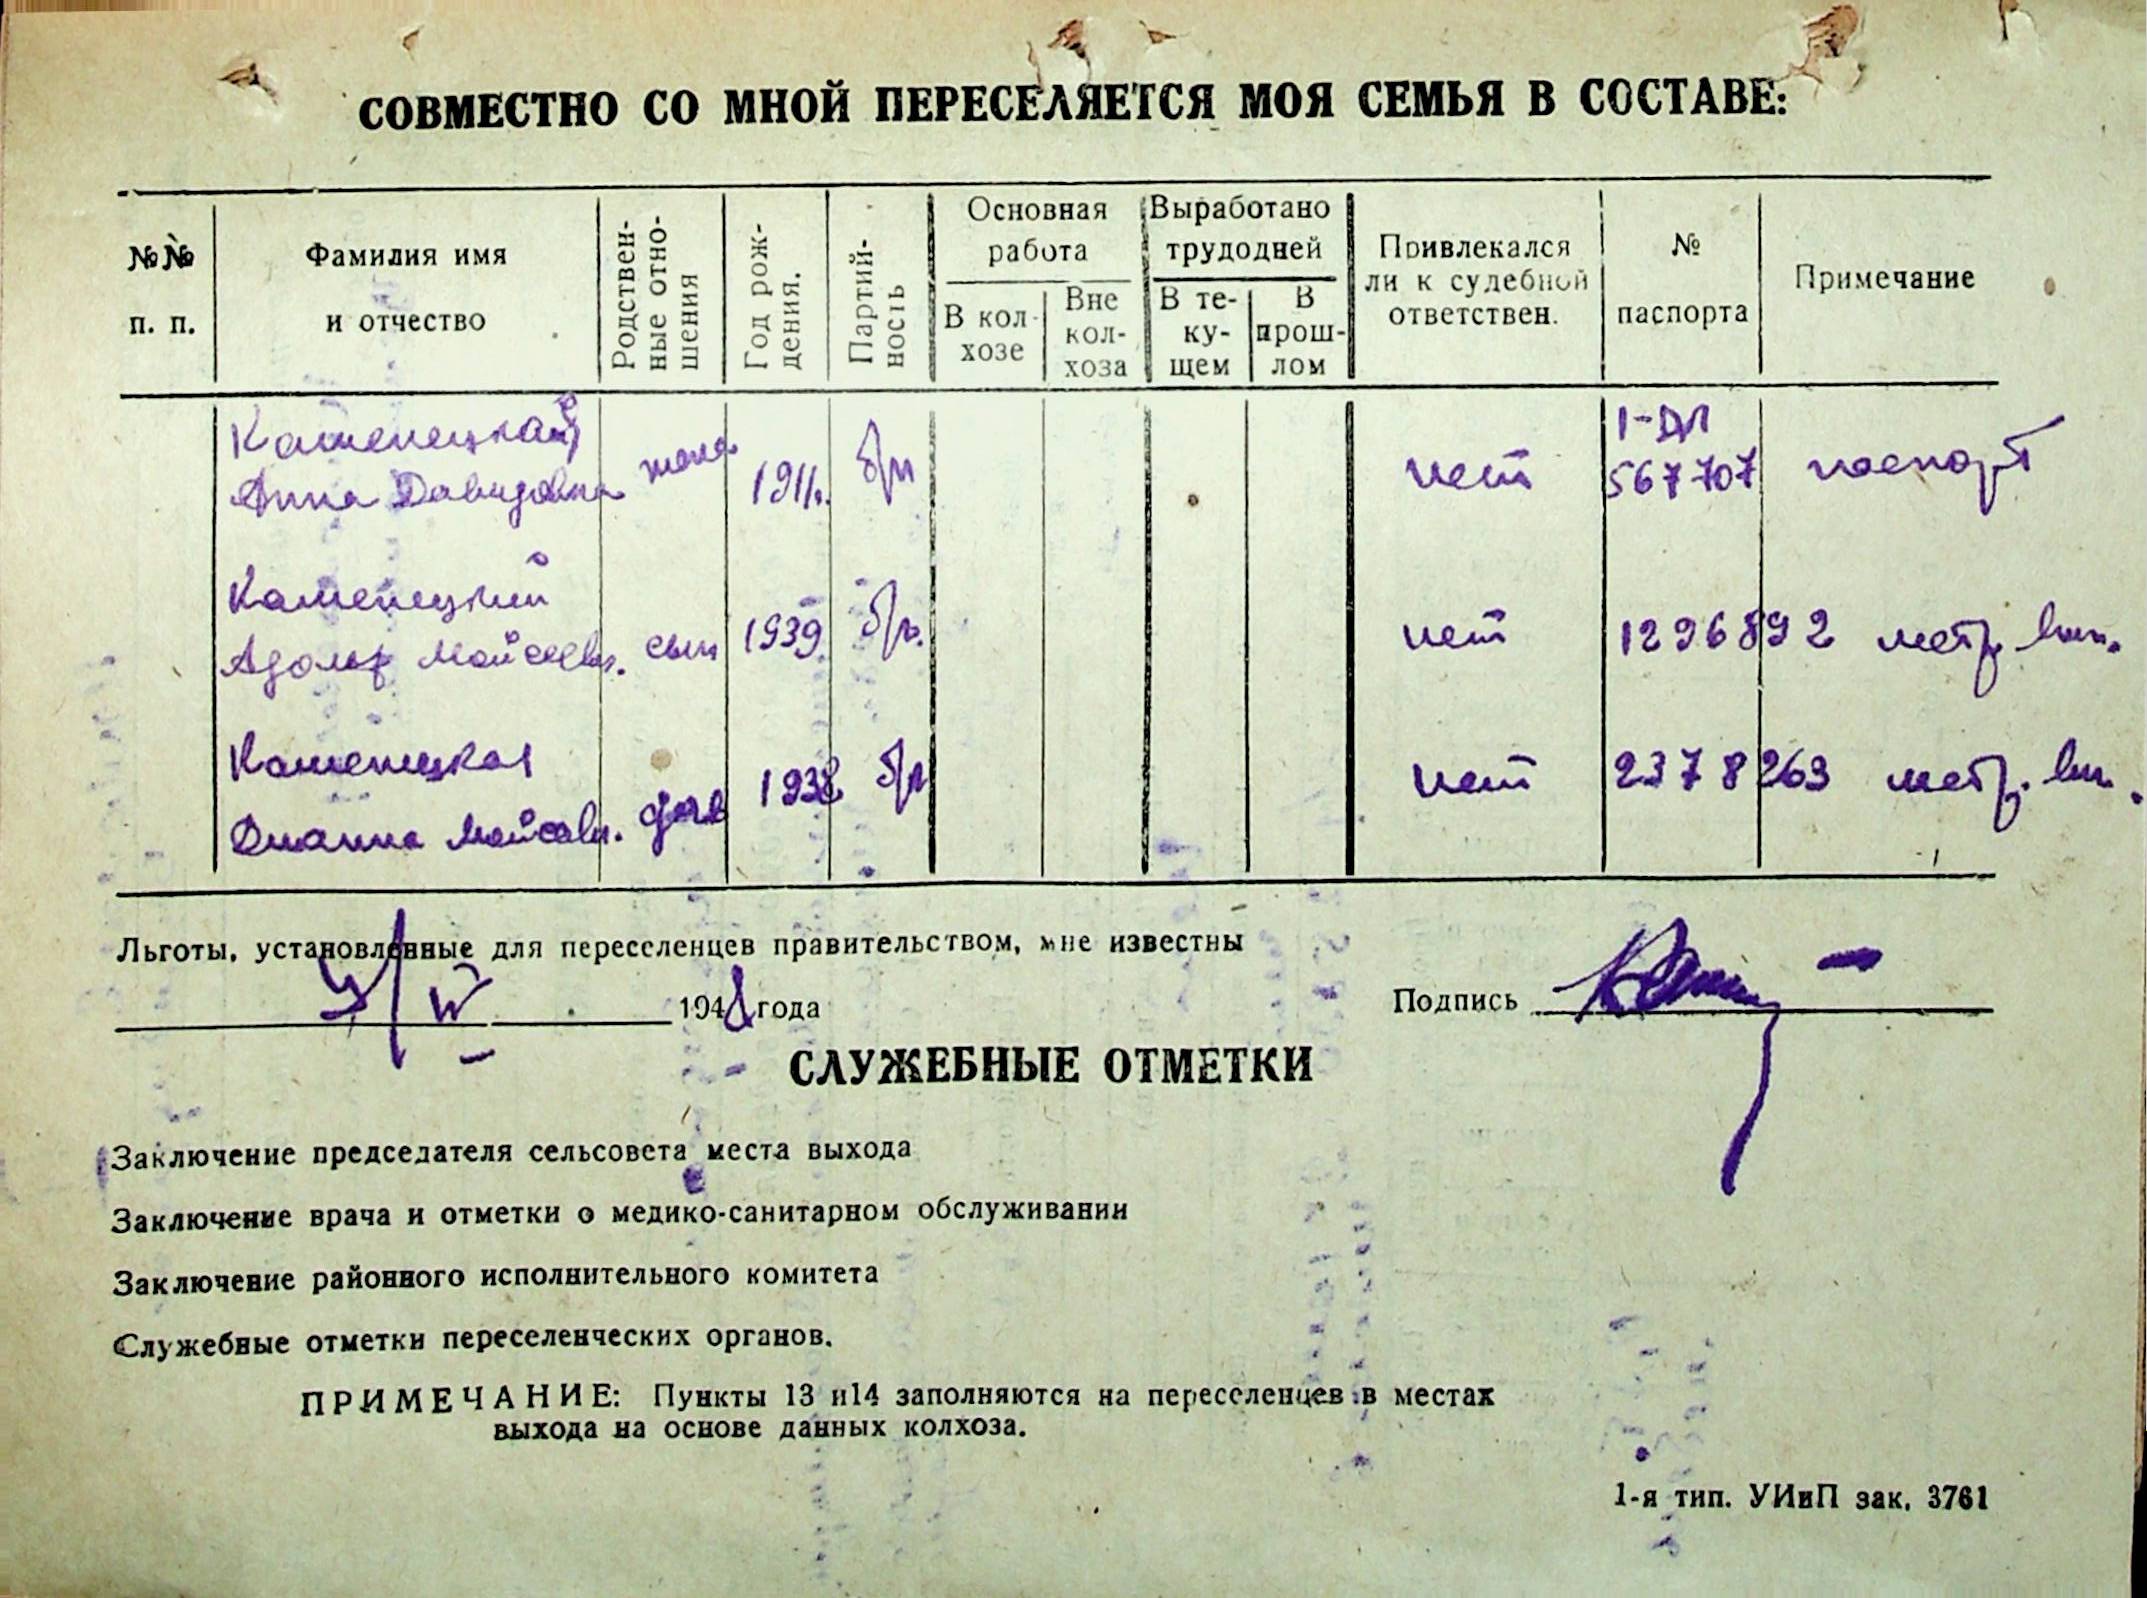 СОВМЕСТНО СО МНОЙ ПЕРЕСЕЛЯЕТСЯ МОЯ СЕМЬЯ В СОСТАВЕ:
№№ п. п.
Фамилия имя и отчество
Родствен-ные отно-шения
Год рож-дения.
Партий-ность
Основная работа
В кол-хозе
Вне кол-хоза
Выработано трудодней
В те-ку-щем
В прош-лом
Привлекался ли к судебной ответствен.
№ паспорта
Примечание
Каменецкая
Анна Давидовна жена 1911г. б/п нет 1-ДЛ 567707 паспорт
Каменецкий
Адольф Мойсеев. сын 1939 б/п. нет 1296892 метр. вып.
Каменецкая
Дианна Мойсеевн. дочь 1938 б/п нет 2378263 метр. вып.
Льготы, установленные для переселенцев правительством, мне известны
1948 года
Подпись
СЛУЖЕБНЫЕ ОТМЕТКИ
Заключение председателя сельсовета места выхода
Заключение врача и отметки о медико-санитарном обслуживании
Заключение районного исполнительного комитета
Служебные отметки переселенческих органов.
ПРИМЕЧАНИЕ: Пункты 13 и14 заполняются на переселенцев в местах
выхода на основе данных колхоза.
1-я тип. УИиП зак. 3761